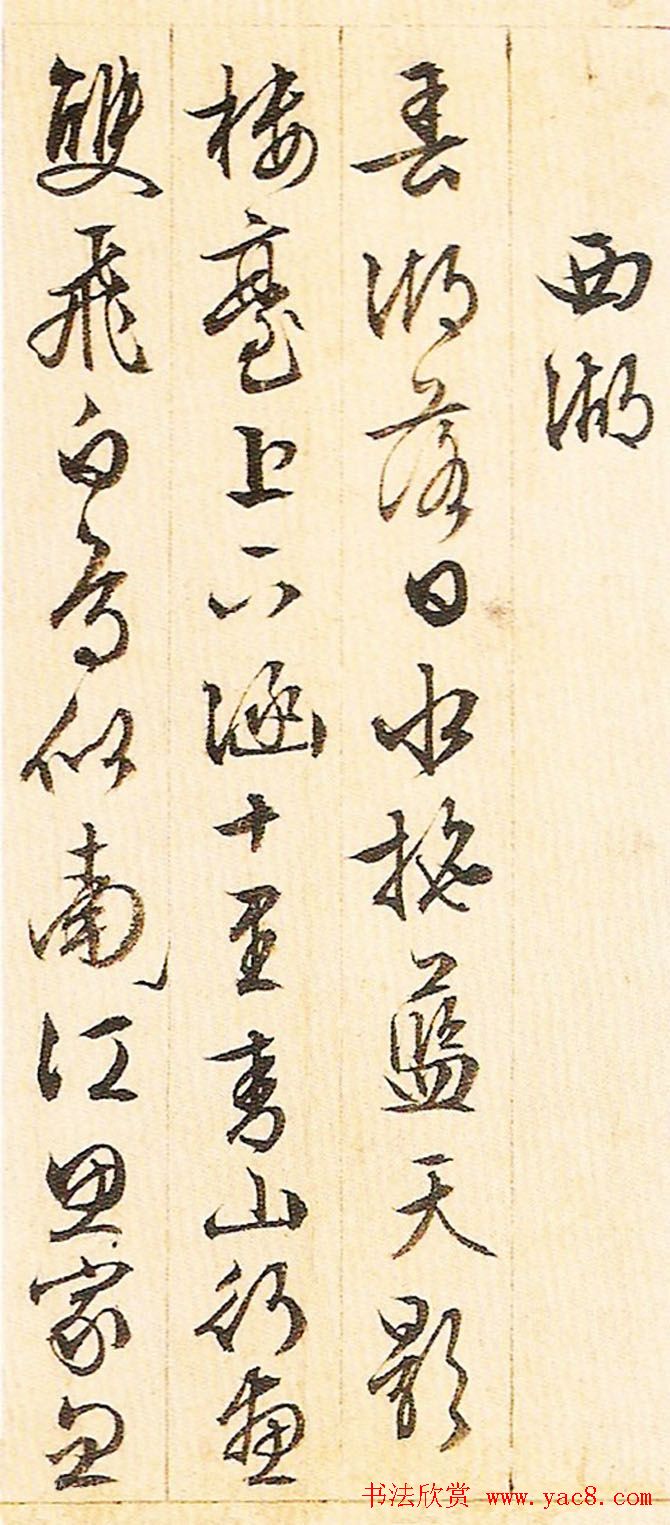 西湖
春湖落日水拖藍天影
樓臺上下涵十里青山行畫
雙飛白鳥似南江思家忽
书法欣赏 www.yac8.com